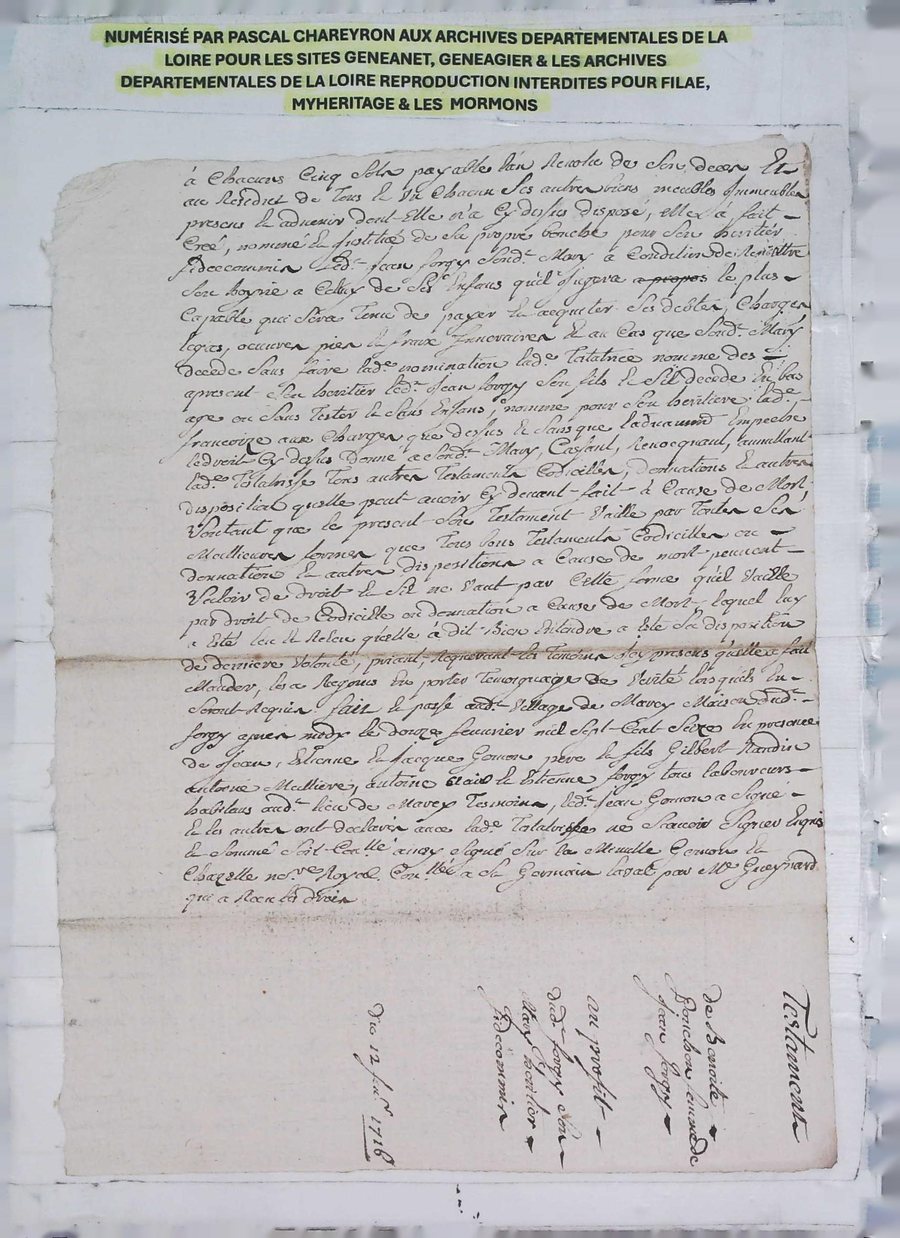 NUMÉRISÉ PAR PASCAL CHAREYRON AUX ARCHIVES DEPARTEMENTALES DE LA
LOIRE POUR LES SITES GENEANET, GENEAGIER & LES ARCHIVES
DEPARTEMENTALES DE LA LOIRE REPRODUCTION INTERDITES POUR FILAE,
MYHERITAGE & LES MORMONS
à Chacuns Cinq Sols payable l'an Revolu de Son deces Et
au Residut de Tous Et Un Chacun Ses autres biens meubles Immeubles
presens Et advenir dont Elle n'a Cy dessus disposé, elle à fait
Creé, nommé Et Institué de Sa propre bouche pour Son heritier
fideecommis led.t Jean forgy Sond.t Mary à Condition de Remettre
Son hoyrie a Celuy de Ses Enfans qu'il Jugera a propos le plus
Capable qui Sera Tenu de payer Et acquiter Ses debtes, Charges
legas, oeuvres pies Et fraix funeraires Et au Cas que Sond.t Mary
decede Sans faire lad.e nomination lad.e Testatrice nomme des
apresent Son heritier led.t Jean forgy Son fils Et Sil decede En bas
age ou Sans Tester Et Sans Enfans, nomme pour Son heritiere lad.e
francoize aux Charges que dessus Et Sans que Empeche
le droit Cy dessus donné a Sond.t Mary, Cassant, Revocquant, annullant
lad.e Testatrisse Tous autres Testaments Codicilles, donnations Et autres
disposition quelle peut avoir Cy devant fait à Cause de Mort
Voullant que le present Son Testament Vaille par Toutes Ses
Meillieures formes que Tous bons Testaments Codicilles ou
donnation Et autres dispositions a Cause de mort peuvent
Valoir de droit Et Sil ne Vaut par Cette forme qu'il Vaille
par droit de Codicille ou donnation a Cause de Mort, lequel luy
a Esté lue Et Relue quelle à dit Bien Entendre a Esté Sa disposition
de derniere Volonté, priant, Requerant les Temoins Icy presens qu'elle a fait
Mander, les a Requis En porter Temoignage de Verité lorsquils En
Seront Requis fait Et passé aud.t Village de Mavey Maison dud.t
forgy apres midy le douze feuvrier mil Sept Cent Seize En presence
de Jean, Etienne Et Jacque Gomon pere Et fils Gilbert Nandin
antoine Mulliere, antoine Et Etienne forgy tous laboureurs
habitans aud.t lieu de Mavey Tesmoins, led.t Jean Gomon a Signé
Et les autres ont declarés avec lad.e Testatrisse ne Scavoir Signer Enquis
Et Sommé Soit Con.llé ainsy Signé Sur la Minutte Gomon Et
Chazelle no.re Royal Con.llé a St Germain laval par M.e Gueynard
qui a Receu les droits
Testament
de Benoite
Ponchon femme de
Jean forgy
au profit
dud.t forgy Son
Mary heritier
fidecommis
du 12 feu.r 1716